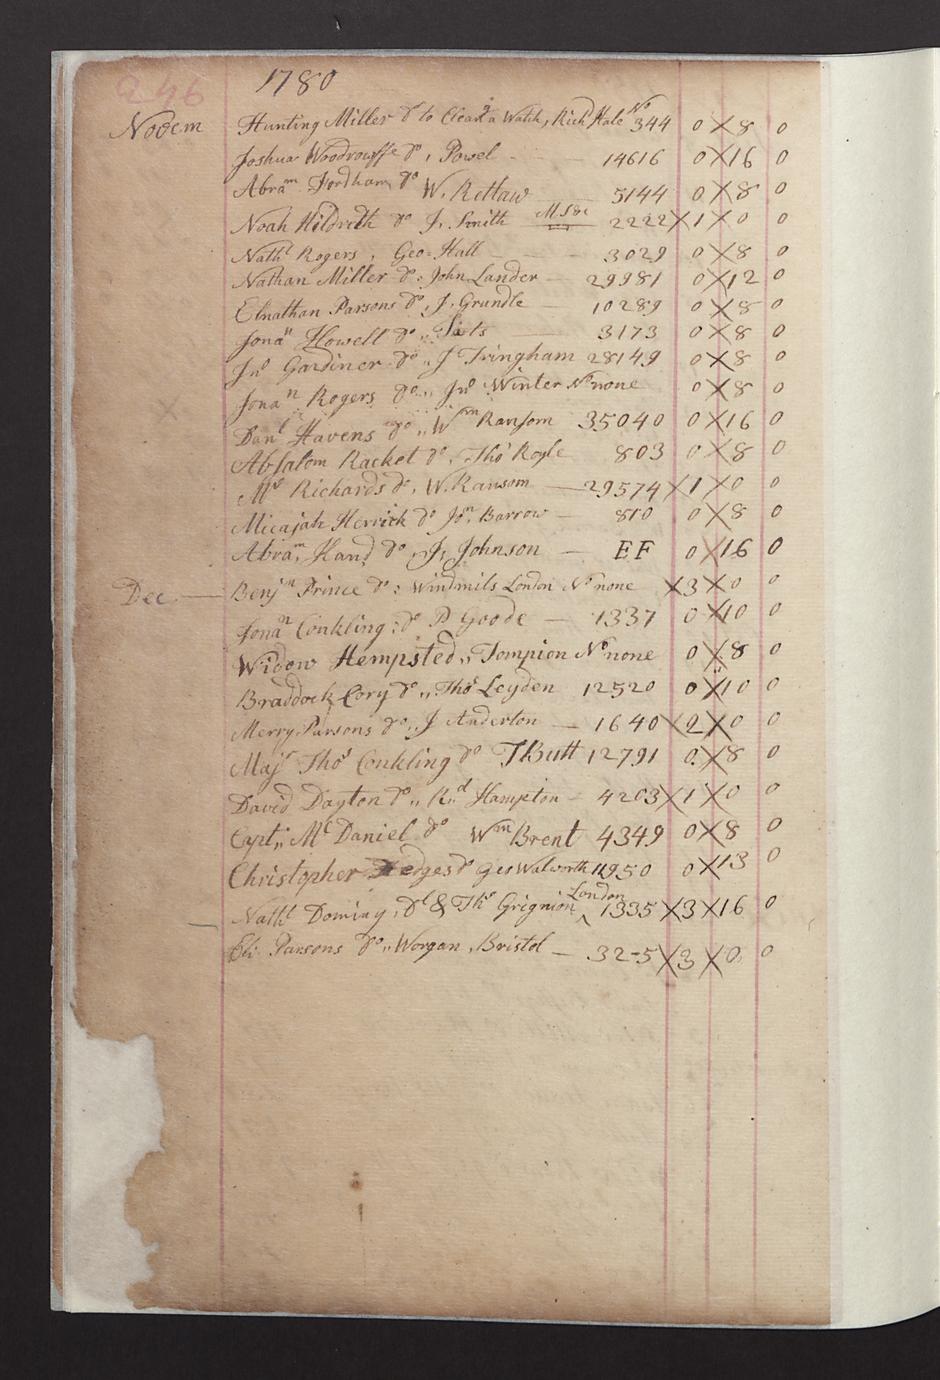 246 1780
Novem Hunting Miller Dr to Cleang a Watch, Rich Hale No 344 0 X 8 0
Joshua Woodrouffe do, Powel 14616 0 X 16 0
Abram Fordham do W. Retlaw 5144 0 X 8 0
Noah Hildreth do J. Smith M.S&c 2222 X 1 X 0 0
Nathl Rogers, Geo= Hall 3029 0 X 8 0
Nathan Miller do: John Lander 29981 0 X 12 0
Elnathan Parsons do, J. Grundle 10289 0 X 8 0
Jonan Howell do,, 3173 0 X 8 0
Jno Gardiner do,, J Tringham 28149 0 X 8 0
Jonan Rogers do,, Jno Winter No none 0 X 8 0
Danl Havens do,, Wm Ransom 35040 0 X 16 0
Absalom Racket do, Thos Royle 803 0 X 8 0
Mr Richards do, W. Ransom — 29574 X 1 X 0 0
Micajah Herrick do Jon, Barrow — 810 0 X 8 0
Abram, Hand do, J, Johnson — EF 0 X 16 0
Dec — Benjn Prince do: Windmils London No none X 3 X 0 0
Jonan Conkling: do P Goode — 1337 0 X 10 0
Widow Hempsted,, Tompion No none 0 X 8 0
Braddock Cory do,, Thos Leyden 12520 0 X 10 0
Merry Parsons do,, J Anderton — 1640 X 2 X 0 0
Majr Thos Conkling do T Butt 12791 0 X 8 0
David Dayton do,, Rd Hampton — 4203 X 1 X 0 0
Capt,, Mc Daniel do Wm Brent 4349 0 X 8 0
Christopher Hedges do Geo Walworth 11950 0 X 13 0
Nathl Dominy, Dr & Thos Grignion London 1335 X 3 X 16 0
Eli Parsons do,, Worgan, Bristol — 32-5 X 3 X 0 0